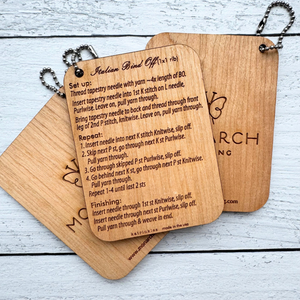 Italian Bind Off (1x1 rib)
Set up:
Thread tapestry needle with yarn ~4x length of BO.
Insert tapestry needle into 1st K stitch on L needle,
Purlwise. Leave on, pull yarn through.
Bring tapestry needle to back and thread through front
leg of 2nd P stitch, knitwise. Leave on, pull yarn through.
Repeat:
1. Insert needle into next K stitch Knitwise, slip off.
2. Skip next P st, go through next K st Purlwise.
Pull yarn through.
3. Go through skipped P st Purlwise, slip off.
4. Go behind next K st, go through next P st Knitwise,
pull yarn through.
Repeat 1-4 until last 2 sts
Finishing:
Insert needle through 1st st Knitwise, slip off.
Insert needle through next st Purlwise, slip off.
Pull yarn through & weave in end.
made in the usa
ARCH
MO